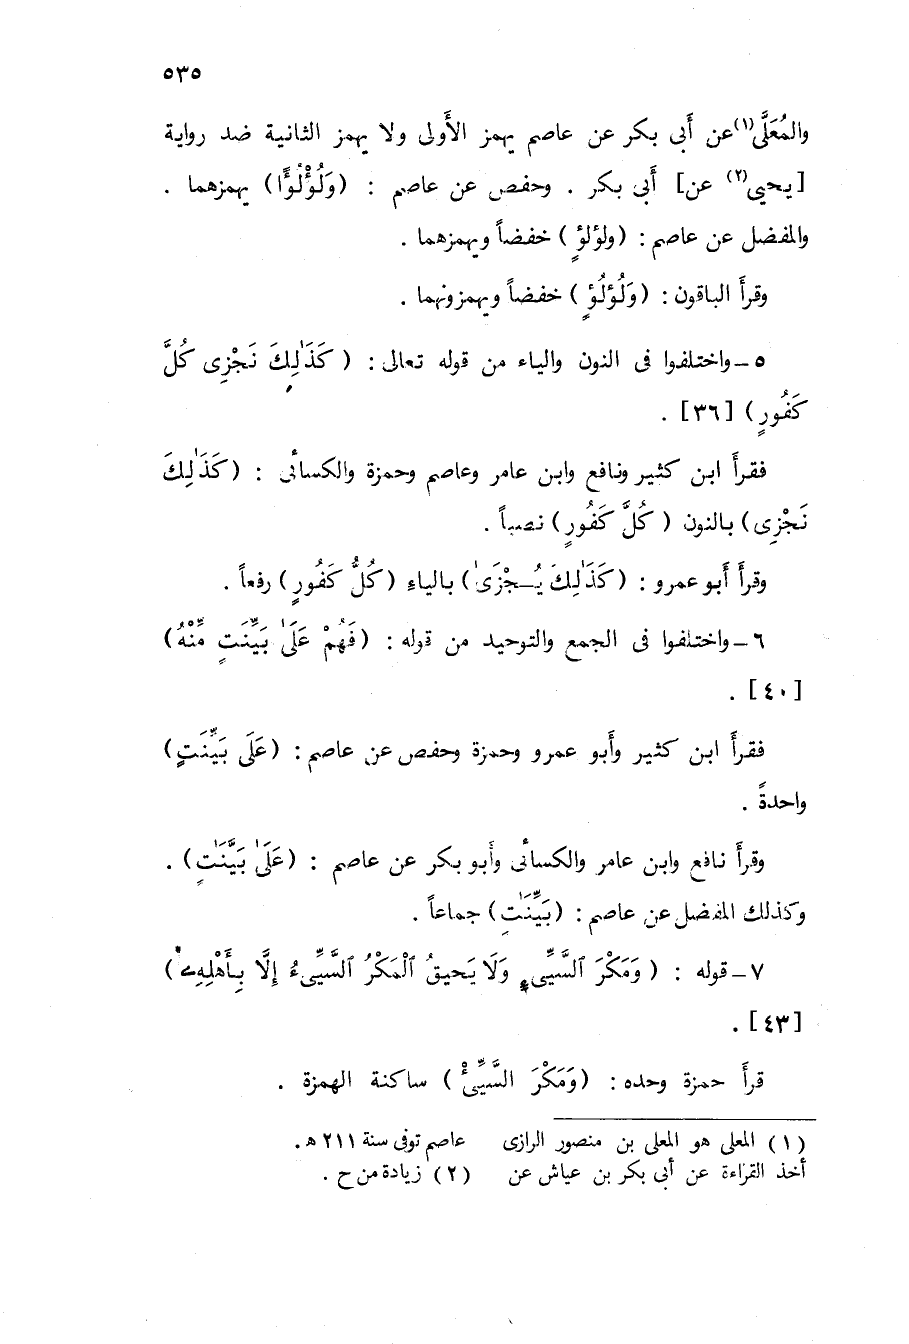 ٥٣٥
والمُعَلَّى(١) عن أَبى بكر عن عاصم يهمز الأُولى ولا يهمز الثانية ضد رواية
[يحيى(٢) عن] أَبى بكر . وحفص عن عاصم : (وَلُؤْلُؤًا) يهمزهما .
والمفضل عن عاصم : (ولؤلؤٍ) خفضاً ويهمزهما .
وقرأَ الباقون : (وَلُؤلُؤٍ) خفضاً ويهمزونهما .
٥ – واختلفوا فى النون والياء من قوله تعالى : ( كَذَٰلِكَ نَجْزِى كُلَّ
كَفُورٍ) [٣٦] .
فقرأَ ابن كثير ونافع وابن عامر وعاصم وحمزة والكسائى : (كَذَٰلِكَ
نَجْزِى) بالنون ( كُلَّ كَفُورٍ) نصباً .
وقرأَ أَبو عمرو : (كَذَٰلِكَ يُجْزَىٰ) بالياء (كُلُّ كَفُورٍ) رفعاً .
٦ – واختلفوا فى الجمع والتوحيد من قوله : (فَهُمْ عَلَىٰ بَيِّنَتٍ مِّنْهُ)
[٤٠] .
فقرأَ ابن كثير وأَبو عمرو وحمزة وحفص عن عاصم : (عَلَى بَيِّنَتٍ)
واحدةً .
وقرأَ نافع وابن عامر والكسائى وأَبو بكر عن عاصم : (عَلَىٰ بَيِّنَٰتٍ) .
وكذلك المفضل عن عاصم : (بَيِّنَٰتٍ) جماعاً .
٧ – قوله : ( وَمَكْرَ ٱلسَّيِّىِٕ وَلَا يَحيقُ ٱلْمَكْرُ ٱلسَّيِّىءُ إِلَّا بِأَهْلِهِۦ)
[٤٣] .
قرأَ حمزة وحده : (وَمَكْرَ السَّيِّئْ) ساكنة الهمزة .
(١) المعلى هو المعلى بن منصور الرازى
أخذ القراءة عن أبى بكر بن عياش عن
عاصم توفى سنة ٢١١ ه .
(٢) زيادة من ح .